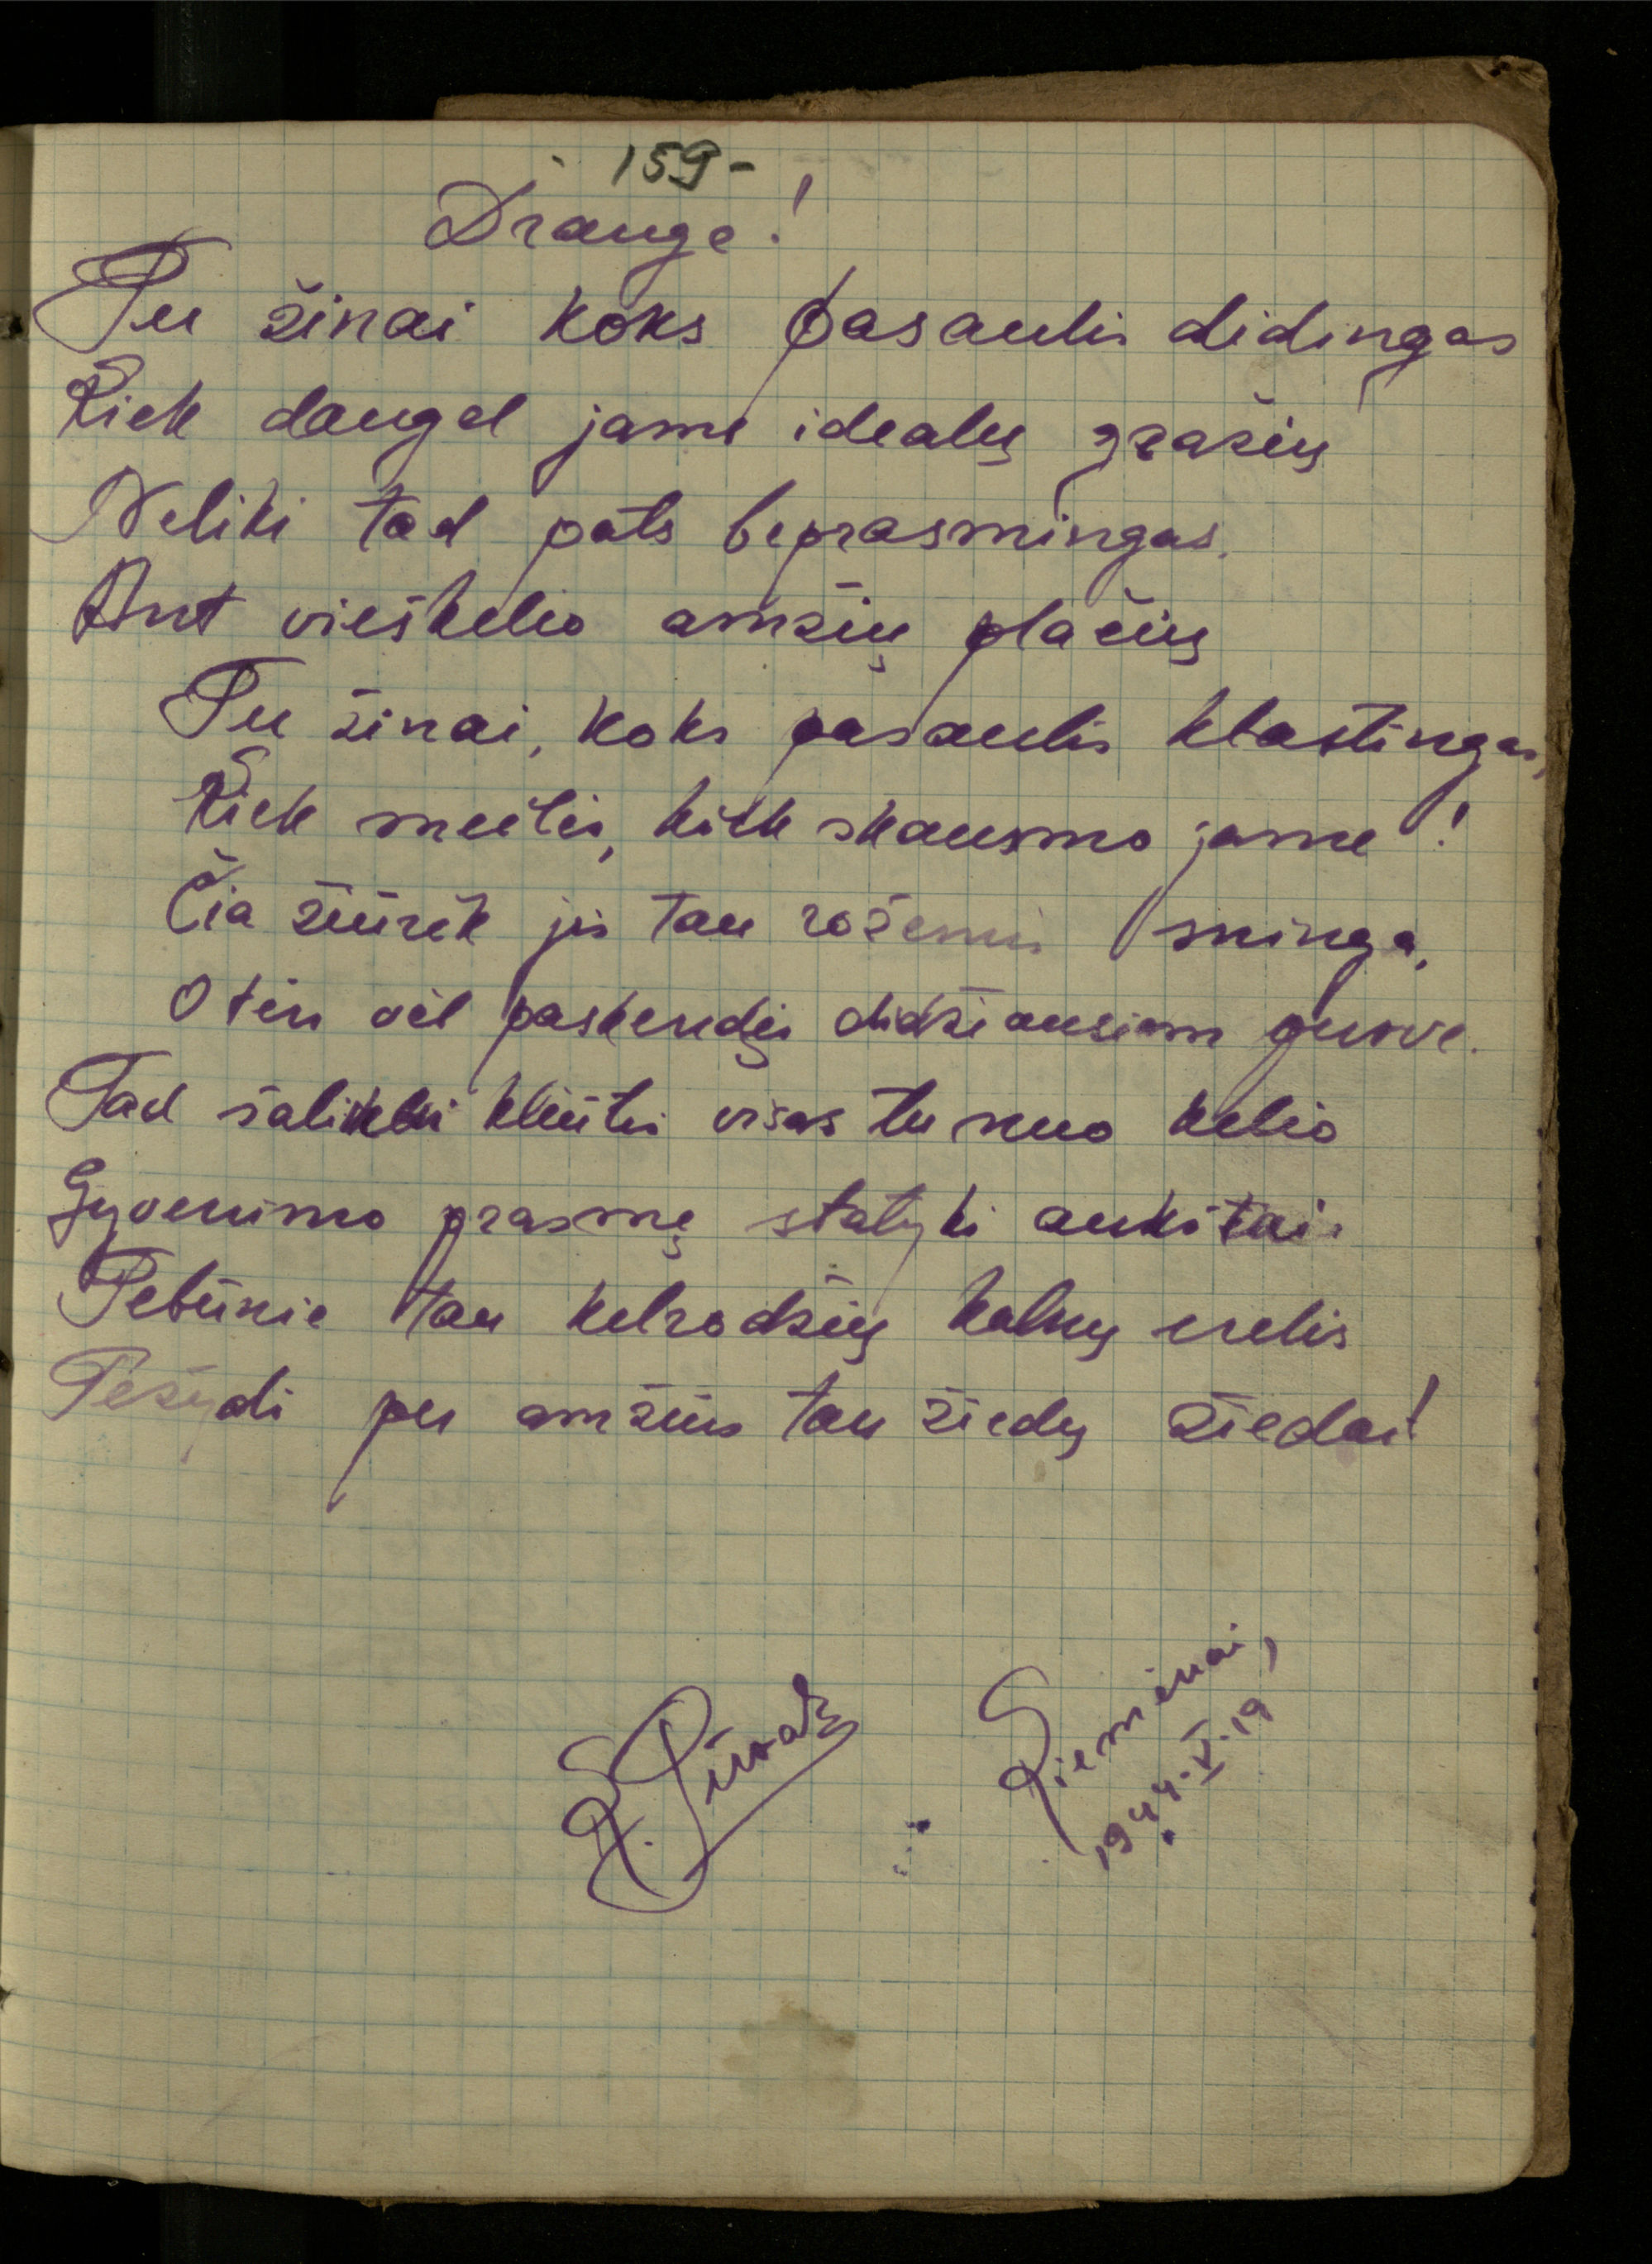 159-
Drauge!
Tu žinai koks pasaulis didingas
Kiek daugel jame idealų gražių
Neliki tad pats beprasmingas,
Ant vieškelio amžių plačių
Tu žinai, koks pasaulis klastingas,
Kiek meilės, kiek skausmo jame!
Čia žiūrėk jis tau rožėmis sninga,
O ten vėl paskendęs didžiausiam purve.
Tad šalinki kliūtis visas tu nuo kelio
Gyvenimo prasmę statyki aukštai.
Tebūnie tau kelrodžių kalnų erelis
Težydi per amžius tau žiedų žiedai!
Riemenai,
1944.V.19